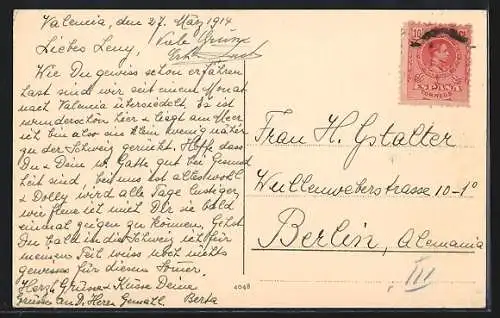 Valencia, den 27. März 1914
Liebes Leny, Viele Grüsse
Wie Du gewiss schon erfahren
hast sind wir seit einem Monat
nach Valencia übersiedelt. Es ist
wunderschön hier & liegt am Meer
ich bin also ein klein wenig näher
zu der Schweiz gerückt. Hoffe dass
Du & Dein w. Gatte gut bei Gesund
heit sind, bei uns ist alles wohl
& Dolly wird alle Tage lustiger,
wie freue ich mich Dir sie bald
einmal zeigen zu können. Gehst
Du bald in die Schweiz ich für
meinen Teil weiss noch nichts
gewisses für diesen Somer.
Herzl. Grüsse & Küsse Deine
Grüsse an D. Herrn Gemahl. Berta
4048
10 Cs 10
ESPAÑA
CORREOS
Frau H. Gstalter
Wullenweberstrasse 10-1º
Berlin, Alemania
III